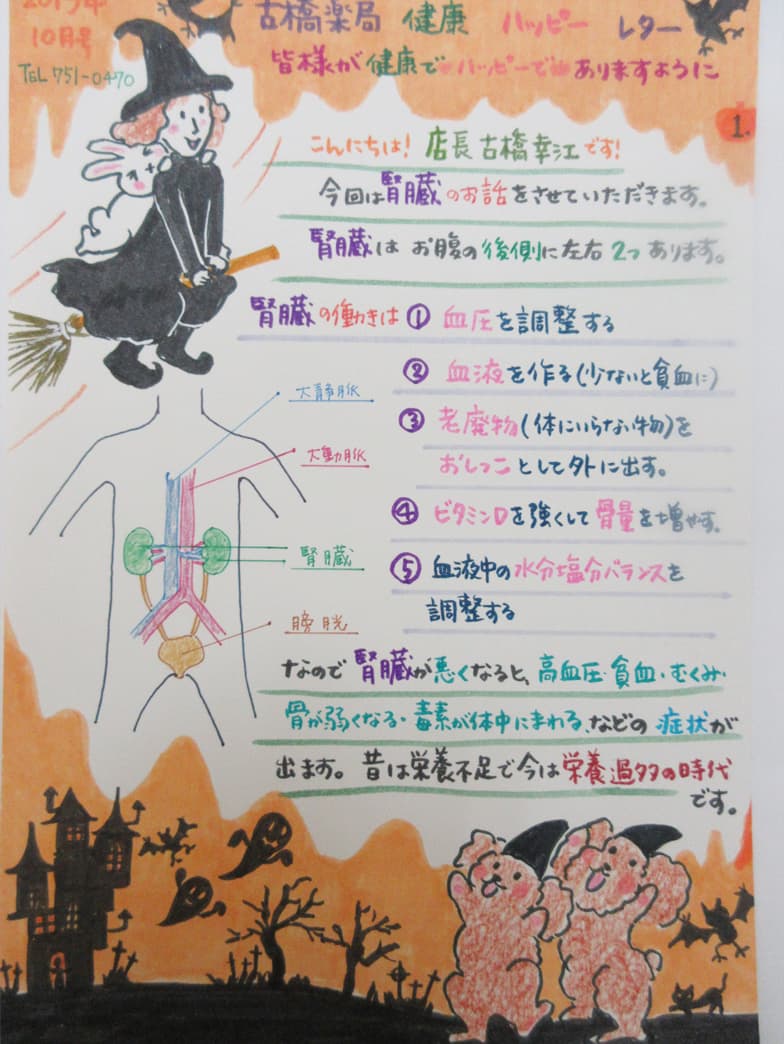 2015年
10月号
TEL 751-0470
古橋薬局 健康 ハッピー レター
皆様が健康でハッピーでありますように
1.
こんにちは! 店長 古橋幸江です!
今回は腎臓のお話をさせていただきます。
腎臓は お腹の後側に左右 2つ あります。
腎臓の働きは ① 血圧を調整する
② 血液を作る(少ないと貧血に)
③ 老廃物(体にいらない物)を
おしっことして外に出す。
④ ビタミンDを強くして骨量を増やす。
⑤ 血液中の水分塩分バランスを
調整する
大静脈
大動脈
腎臓
膀胱
なので 腎臓が悪くなると、高血圧・貧血・むくみ・
骨が弱くなる・毒素が体中にまわる、などの 症状が
出ます。 昔は栄養不足で今は栄養過多の時代
です。